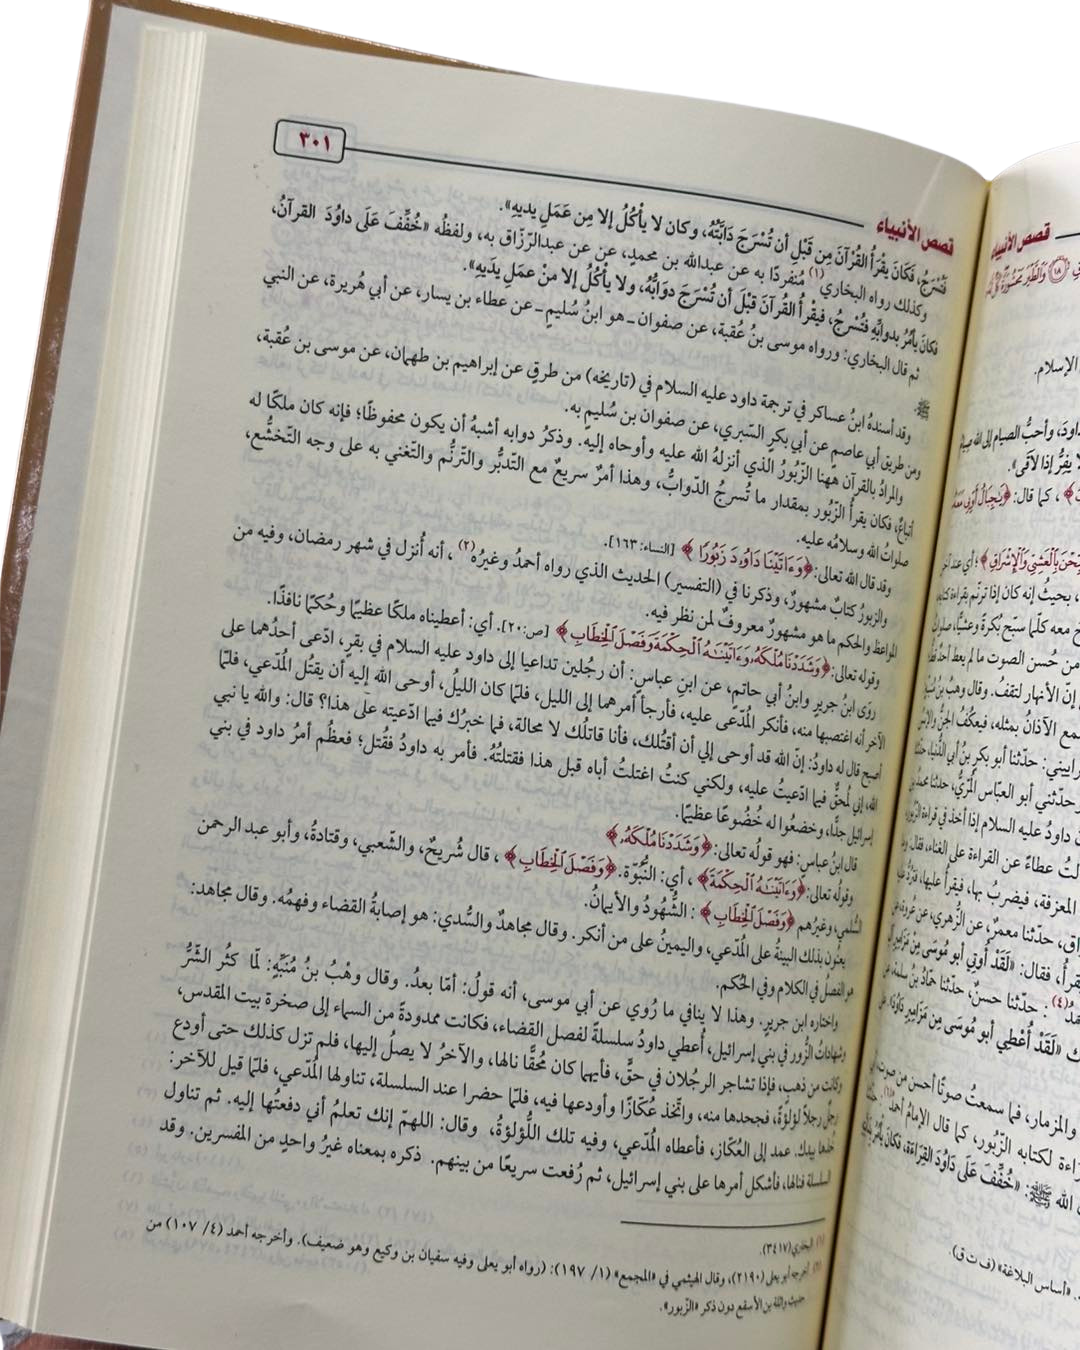 ٣٠١
قصص الأنبياء
فَتُسْرَجُ، فَكَانَ يقرَأُ القُرْآنَ مِن قَبْلِ أن تُسْرَجَ دَابَّتُهُ، وكان لا يأكُلُ إلا مِن عَمَلِ يديهِ».
وكذلك رواه البخاري(١) مُنفردًا به عن عبدالله بن محمدٍ، عن عن عبدالرّزّاق به، ولفظُه «خُفِّفَ عَلَى داوُدَ القرآنُ،
فكانَ يأمُرُ بدوابِّهِ فتُسْرجُ، فيقْرأُ القُرآنَ قبْلَ أن تُسْرَجَ دوَابُّهُ، ولا يأكُلُ إلا منْ عمَلِ يدَيهِ».
ثم قال البخاري: ورواه موسى بنُ عُقبة، عن صفوان ـ هو ابنُ سُليمٍ ـ عن عطاء بن يسار، عن أبي هُريرة، عن النبي
ﷺ.
وقد أسندهُ ابنُ عساكر في ترجمة داود عليه السلام في (تاريخه) من طرقٍ عن إبراهيم بن طهمان، عن موسى بن عُقبة،
ومن طريق أبي عاصمٍ عن أبي بكرٍ السّبري، عن صفوان بن سُليمٍ به.
والمرادُ بالقرآن ههنا الزّبُورُ الذي أنزلهُ الله عليه وأوحاه إليه. وذكرُ دوابه أشبهُ أن يكون محفوظًا؛ فإنه كان ملكًا له
أتباعٌ، فكان يقرأُ الزّبُور بمقدار ما تُسرجُ الدّوابُّ، وهذا أمرٌ سريعٌ مع التّدبُّر والتّرنُّم والتّغني به على وجه التّخشُّع،
صلواتُ الله وسلامُه عليه.
وقد قال الله تعالى: ﴿وَءَاتَيْنَا دَاوُۥدَ زَبُورًا﴾ [النساء: ١٦٣].
والزبورُ كتابٌ مشهورٌ، وذكرنا في (التفسير) الحديث الذي رواه أحمدُ وغيرُه(٢)، أنه أُنزل في شهر رمضان، وفيه من
المواعظ والحكم ما هو مشهورٌ معروفٌ لمن نظر فيه.
وقوله تعالى: ﴿وَشَدَدْنَا مُلْكَهُۥ وَءَاتَيْنَٰهُ ٱلْحِكْمَةَ وَفَصْلَ ٱلْخِطَابِ﴾ [ص: ٢٠]. أي: أعطيناه ملكًا عظيمًا وحُكمًا نافذًا.
روَى ابنُ جريرٍ وابنُ أبي حاتمٍ، عن ابنِ عباسٍ: أن رجُلين تداعيا إلى داود عليه السلام في بقرٍ، ادّعى أحدُهما على
الآخر أنه اغتصبها منه، فأنكر المُدّعى عليه، فأرجأ أمرهما إلى الليل، فلمّا كان الليلُ، أوحى الله إليه أن يقتُل المُدّعي، فلمّا
أصبح قال له داودُ: إنّ الله قد أوحى إلي أن أقتُلك، فأنا قاتلُك لا محالة، فما خبرُك فيما ادّعيته على هذا؟ قال: والله يا نبي
الله، إني لمُحقٌّ فيما ادّعيتُ عليه، ولكني كنتُ اغتلتُ أباه قبل هذا فقتلتُهُ. فأمر به داودُ فقُتل؛ فعظُم أمرُ داود في بني
إسرائيل جدًّا، وخضعُوا له خُضُوعًا عظيمًا.
قال ابنُ عباس: فهو قولُه تعالى: ﴿وَشَدَدْنَا مُلْكَهُۥ﴾
وقولُه تعالى: ﴿وَءَاتَيْنَٰهُ ٱلْحِكْمَةَ﴾، أي: النُّبُوّة. ﴿وَفَصْلَ ٱلْخِطَابِ﴾، قال شُريحٌ، والشّعبي، وقتادةُ، وأبو عبد الرحمن
السُّلمي، وغيرُهم ﴿وَفَصْلَ ٱلْخِطَابِ﴾: الشّهُودُ والأيمانُ.
يعنُون بذلك البينةُ على المُدّعي، واليمينُ على من أنكر. وقال مجاهدٌ والسُّدي: هو إصابةُ القضاء وفهمُه. وقال مجاهد:
هو الفصلُ في الكلام وفي الحُكم.
واختاره ابن جرير. وهذا لا ينافي ما رُوي عن أبي موسى، أنه قولُ: أمّا بعدُ. وقال وهْبُ بنُ مُنَبِّهٍ: لمّا كثُر الشّرُّ
وشهاداتُ الزُّور في بني إسرائيل، أُعطي داودُ سلسلةً لفصل القضاء، فكانت ممدودةً من السماء إلى صخرة بيت المقدس،
وكانت من ذهبٍ، فإذا تشاجر الرجُلان في حقٍّ، فأيهما كان مُحقًّا نالها، والآخرُ لا يصلُ إليها، فلم تزل كذلك حتى أودع
رجلٌ رجلاً لؤلؤةً، فجحدها منه، واتّخذ عُكّازًا وأودعها فيه، فلمّا حضرا عند السلسلة، تناولها المُدّعي، فلمّا قيل للآخر:
خُذها بيدك. عمد إلى العُكّاز، فأعطاه المُدّعي، وفيه تلك اللُّؤلؤةُ، وقال: اللهمّ إنك تعلمُ أني دفعتُها إليه. ثم تناول
السلسلة فنالها، فأشكل أمرها على بني إسرائيل، ثم رُفعت سريعًا من بينهم. ذكره بمعناه غيرُ واحدٍ من المفسرين. وقد
(١) البخاري (٣٤١٧).
(٢) أخرجه أبو يعلى (٢١٩٠)، وقال الهيثمي في «المجمع» (١/ ١٩٧): (رواه أبو يعلى وفيه سفيان بن وكيع وهو ضعيف). وأخرجه أحمد (٤/ ١٠٧) من
حديث واثلة بن الأسقع دون ذكر «الزّبور».
قصص الأنبياء
الإسلام.
داودَ، وأحبُّ الصيام إلى الله صِيامُ
لا يفِرُّ إذا لاقَى».
كما قال: ﴿يَٰجِبَالُ أَوِّبِى مَعَهُۥ
بِٱلْعَشِىِّ وَٱلْإِشْرَاقِ﴾؛ أي عند آخر
، بحيثُ إنه كان إذا ترنّم بقراءة كتابه
معه كلّما سبّح بُكرةً وعشيًّا، صلواتُ
من حُسن الصوت ما لم يعط أحدٌ قط
إنّ الأنهار لتقفُ. وقال وهبُ بنُ مُنبّه
الآذانُ بمثله، فيعكُفُ الجنُّ والإنسُ
حدّثنا أبو بكرٍ بنُ أبي الدُّنيا، حدثنا
حدّثني أبو العبّاس
داودُ عليه السلام إذا أخذ في قراءة الزّبور،
عطاءً عن القراءة على الغناء، فقال: وما
المعزفة، فيضربُ بها، فيقرأُ عليها،
حدّثنا معمرٌ، عن الزُّهري، عن عُروة،
فقال: «لَقَدْ أُوتِي أبو مُوسَى مِنْ مَزَامِيرِ
(٤): حدّثنا حسنٌ، حدّثنا حمّادُ بنُ سلمة،
«لَقَدْ أُعْطِي أبو مُوسَى مِن مَزَامِيرِ دَاوُدَ». على
والمزمار، فما سمعتُ صوتًا أحسن من صوت
لكتابه الزّبُور، كما قال الإمامُ أحمدُ
الله ﷺ: «خُفِّفَ عَلَى دَاوُدَ القِرَاءَة، فَكَانَ يأمُرُ
«أساس البلاغة» (ف ت ق).